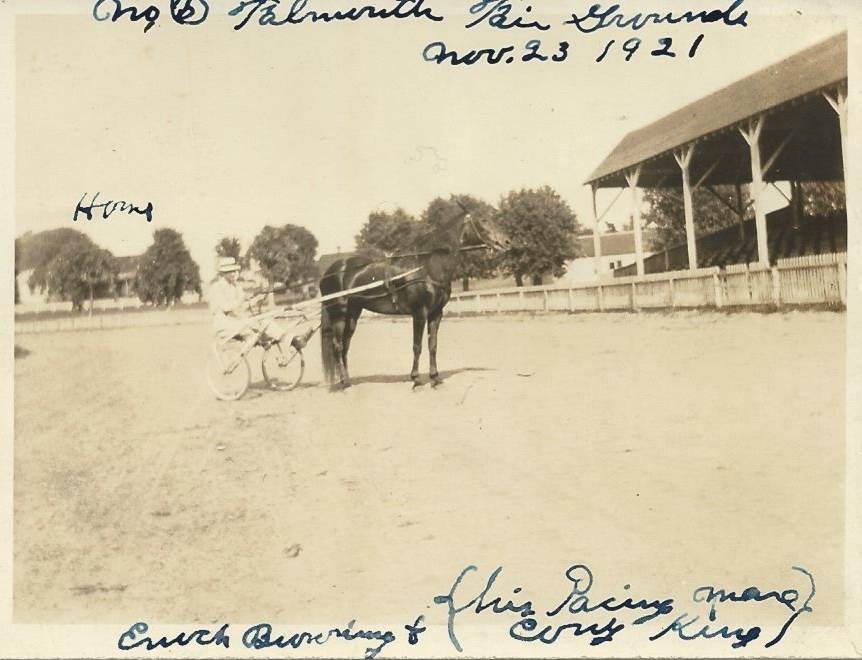 No 6 Falmouth Fair Grounds
Nov. 23 1921
Home
(his Pacing mare)
Enoch Browning &
King